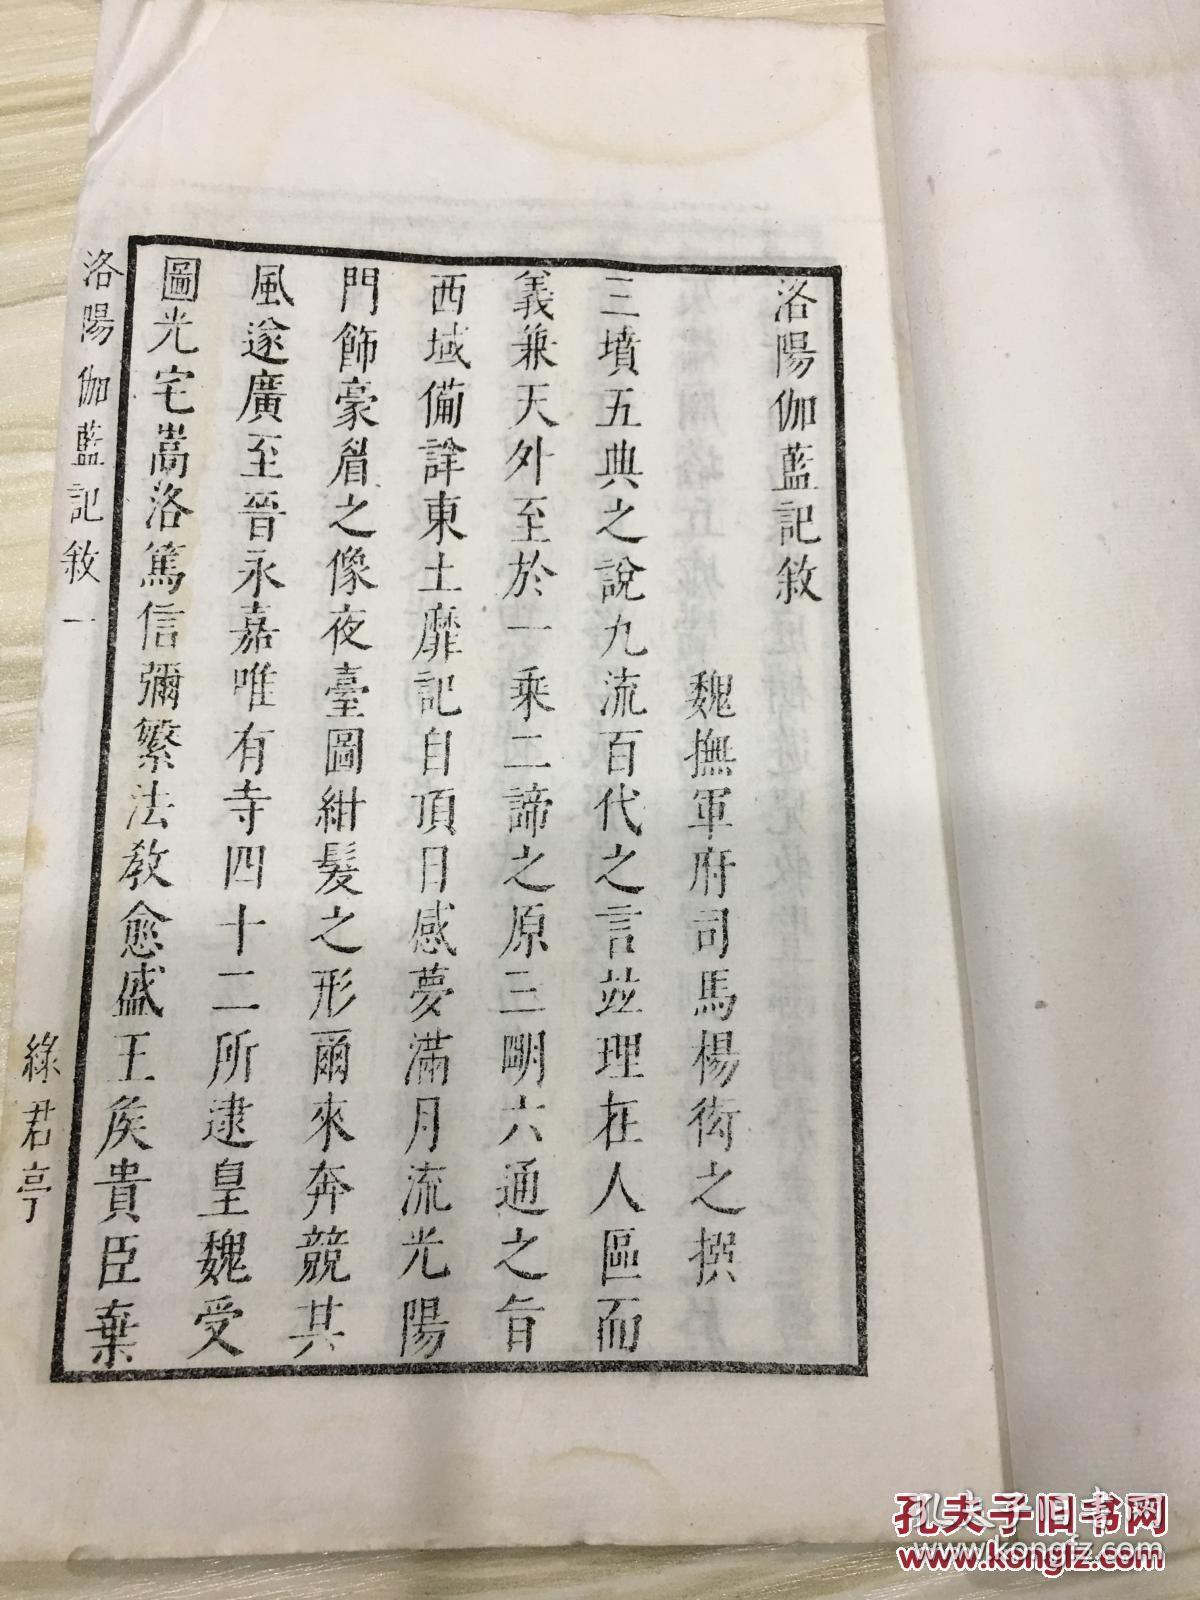 洛陽伽藍記敘
魏撫軍府司馬楊衒之撰
三墳五典之說九流百代之言竝理在人區而
義兼天外至於一乘二諦之原三明六通之旨
西域備詳東土靡記自頂日感夢滿月流光陽
門飾豪眉之像夜臺圖紺髮之形爾來奔競其
風遂廣至晉永嘉唯有寺四十二所逮皇魏受
圖光宅嵩洛篤信彌繁法教愈盛王侯貴臣棄
洛陽伽藍記敘一
綠君亭
孔夫子旧书网
www.kongfz.com